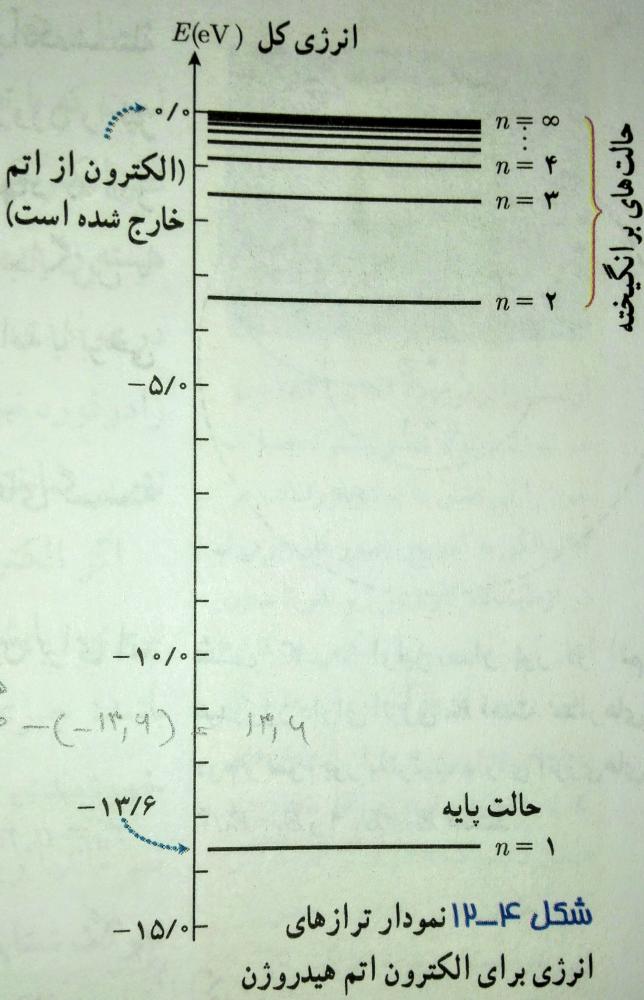 انرژی کل E(eV)
۰/۰
n = ∞
⋮
(الکترون از اتم
خارج شده است)
n = ۴
n = ۳
n = ۲
حالت‌های برانگیخته
−۵/۰
−۱۰/۰
−(−۱۳,۶) = ۱۳,۶
−۱۳/۶
حالت پایه
n = ۱
−۱۵/۰
شکل ۴ــ۱۲ نمودار ترازهای
انرژی برای الکترون اتم هیدروژن